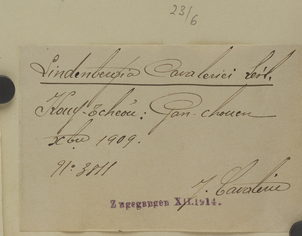 23/6
Lindenbergia Cavaleriei Lévl.
Kouy-Tchéou: Gan-chouen
Xbre 1909.
N° 3811
J. Cavalerie
Zugegangen XII.1914.